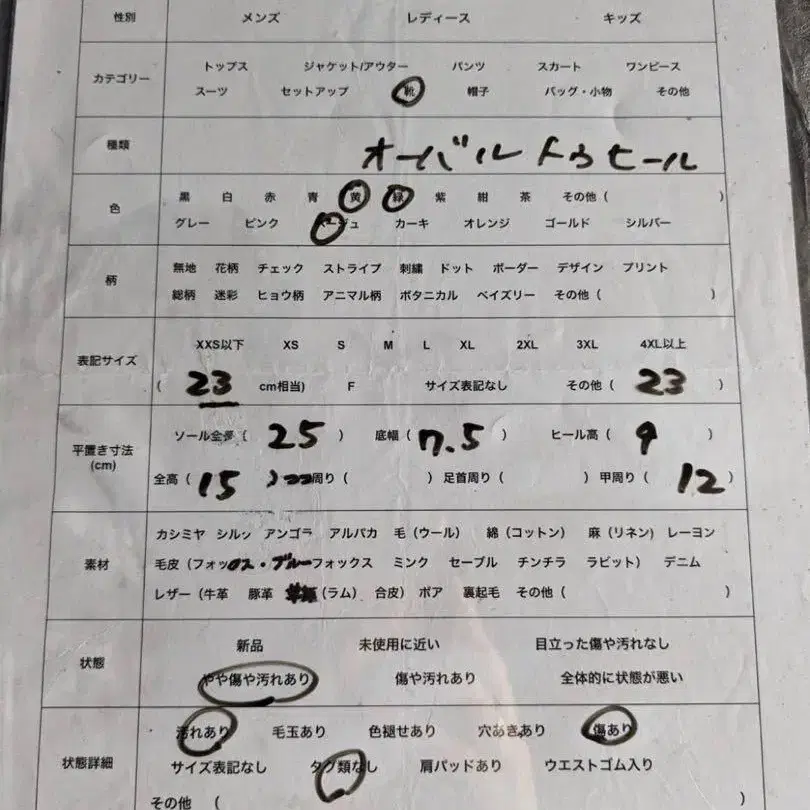 性別 メンズ レディース キッズ
カテゴリー トップス ジャケット/アウター パンツ スカート ワンピース
スーツ セットアップ 靴 帽子 バッグ・小物 その他
種類 オーバルトゥヒール
色 黒 白 赤 青 黄 緑 紫 紺 茶 その他( )
グレー ピンク ベージュ カーキ オレンジ ゴールド シルバー
柄 無地 花柄 チェック ストライプ 刺繍 ドット ボーダー デザイン プリント
総柄 迷彩 ヒョウ柄 アニマル柄 ボタニカル ペイズリー その他( )
表記サイズ XXS以下 XS S M L XL 2XL 3XL 4XL以上
( 23 cm相当) F サイズ表記なし その他( 23 )
平置き寸法(cm) ソール全長( 25 ) 底幅( 7.5 ) ヒール高( 9 )
全高( 15 ) 周り( ) 足首周り( ) 甲周り( 12 )
素材 カシミヤ シルク アンゴラ アルパカ 毛(ウール) 綿(コットン) 麻(リネン) レーヨン
毛皮(フォックス・ブルーフォックス ミンク セーブル チンチラ ラビット) デニム
レザー(牛革 豚革 (ラム) 合皮) ボア 裏起毛 その他( )
状態 新品 未使用に近い 目立った傷や汚れなし
やや傷や汚れあり 傷や汚れあり 全体的に状態が悪い
状態詳細 汚れあり 毛玉あり 色褪せあり 穴あきあり 傷あり
サイズ表記なし タグ類なし 肩パッドあり ウエストゴム入り
その他 (